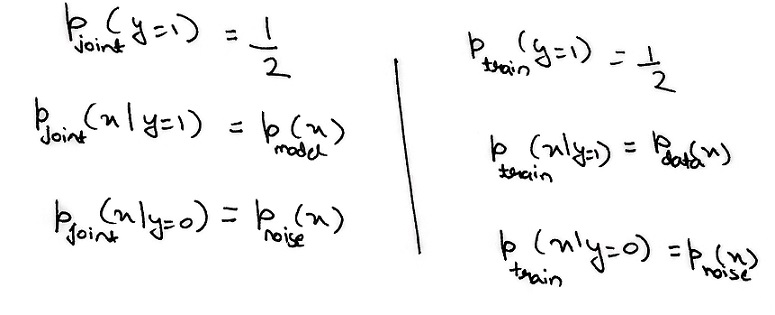 p_joint(y=1) = 1/2
p_joint(x|y=1) = p_model(x)
p_joint(x|y=0) = p_noise(x)
p_train(y=1) = 1/2
p_train(x|y=1) = p_data(x)
p_train(x|y=0) = p_noise(x)